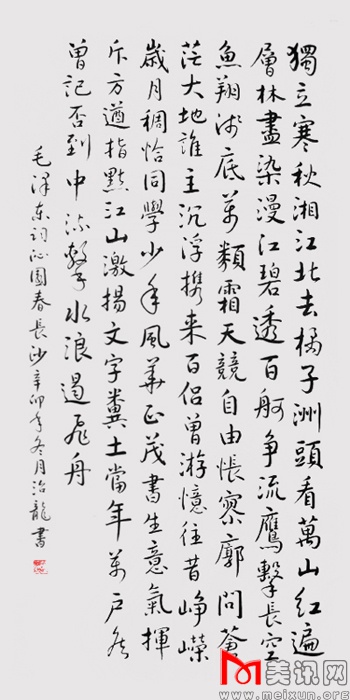 獨立寒秋湘江北去橘子洲頭看萬山紅遍
層林盡染漫江碧透百舸争流鷹擊長空
魚翔淺底萬類霜天競自由悵寥廓問蒼
茫大地誰主沉浮携来百侣曾游憶往昔崢嶸
歲月稠恰同學少年風華正茂書生意氣揮
斥方遒指點江山激揚文字糞土當年萬户侯
曾記否到中流擊水浪遏飛舟
毛泽东词沁園春長沙辛卯年冬月治龍書
美讯网
www.meixun.org